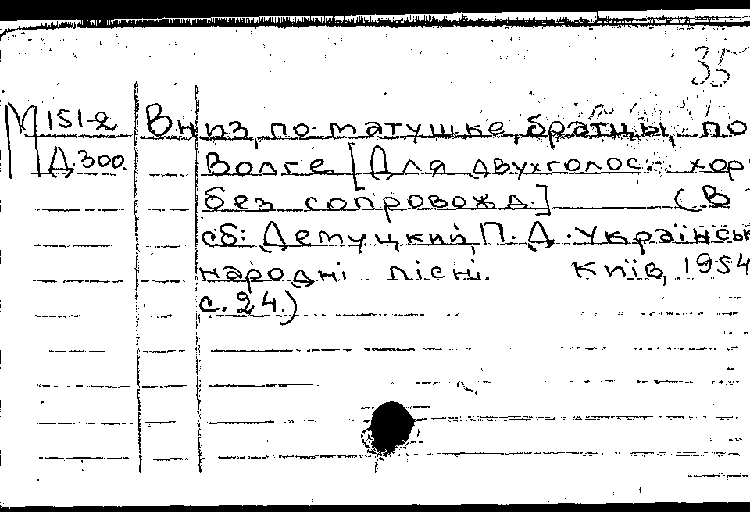 35
М 151-2 Вниз, по матушке, братцы, по
Д.300. Волге [Для двухголос. хор
без сопровожд.] (В
сб: Демуцкий, П.Д. Українськ
народні пісні. Київ, 1954
с.24.)